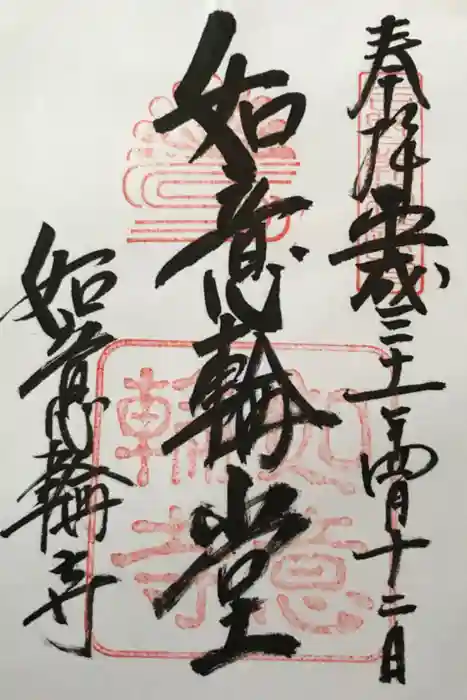 奉拝 平成三十一年四月十二日
如意輪堂
如意輪寺
如意
輪寺